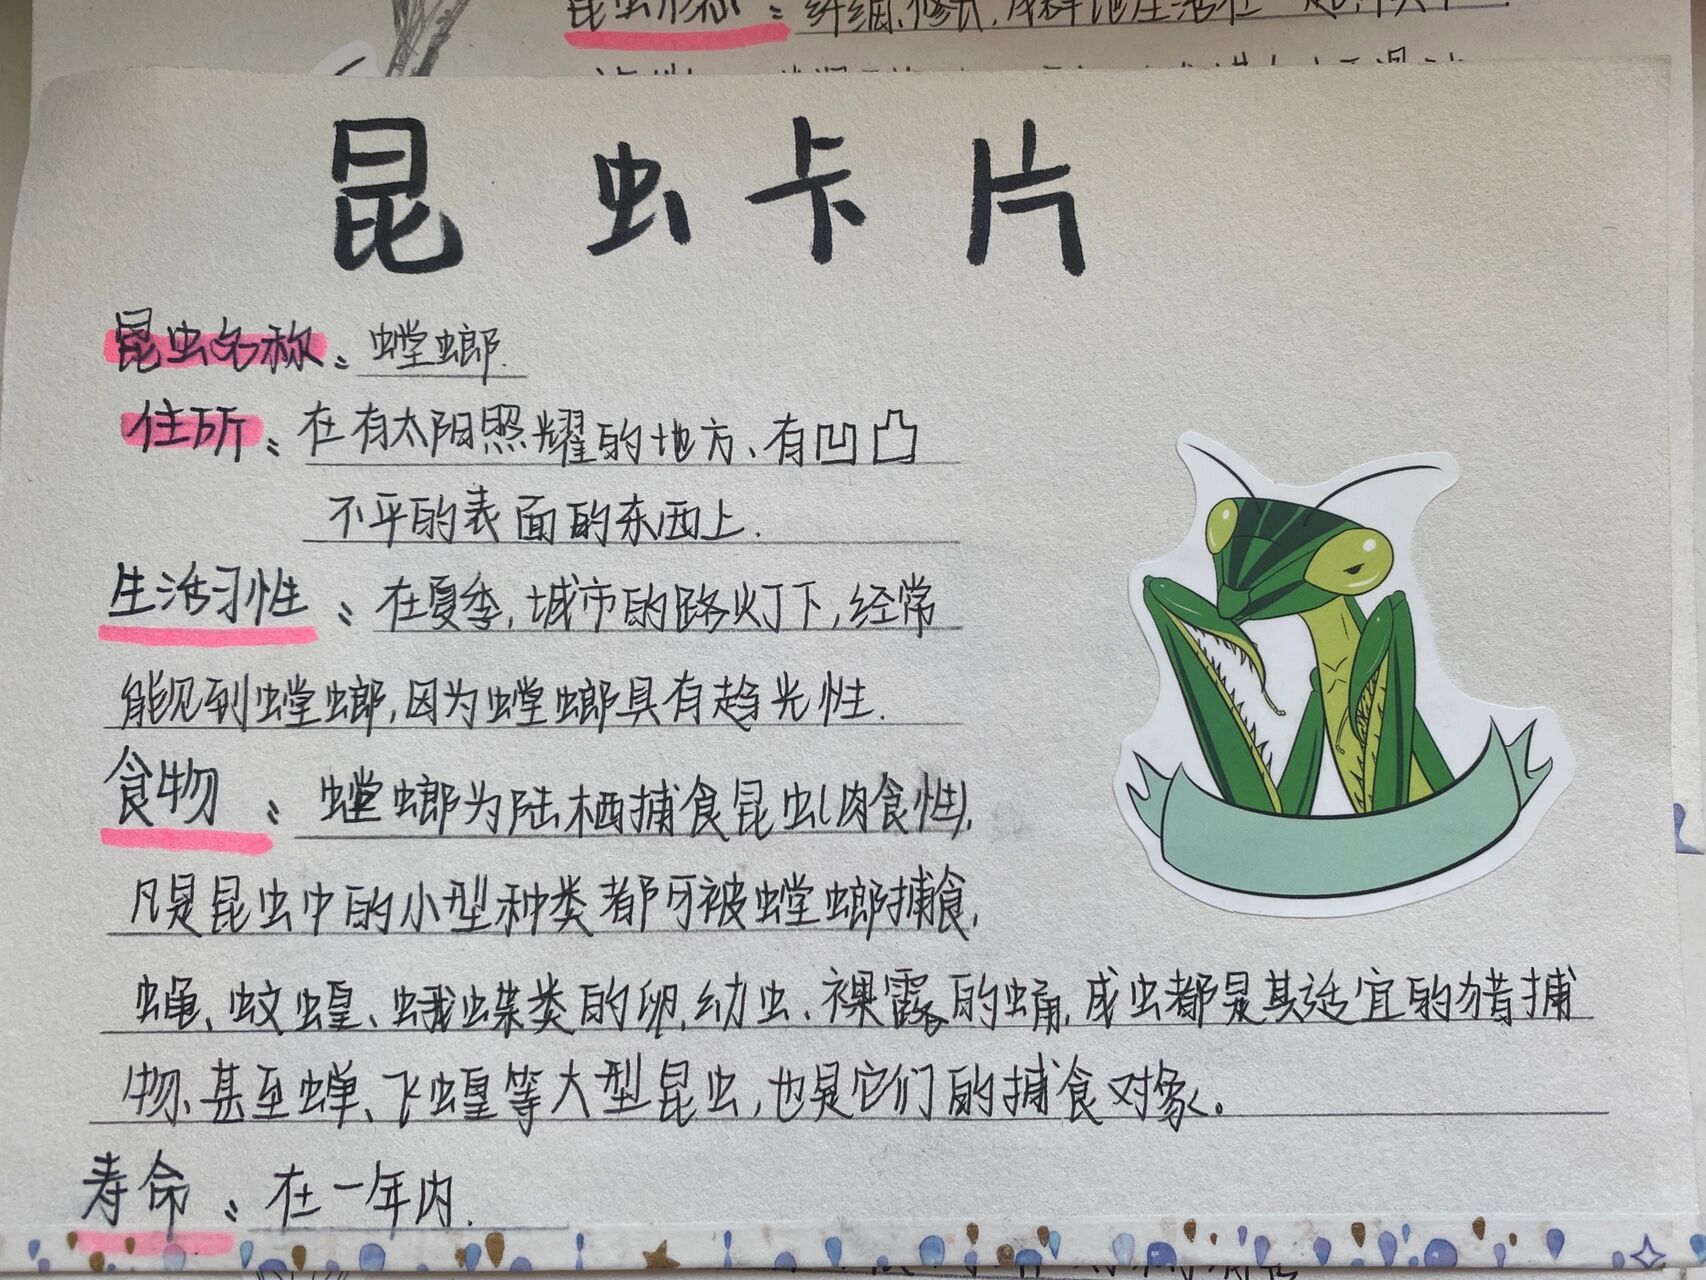 昆虫卡片
昆虫名称：螳螂.
住所：在有太阳照耀的地方、有凹凸
不平的表面的东西上.
生活习性：在夏季，城市的路灯下，经常
能见到螳螂，因为螳螂具有趋光性.
食物：螳螂为陆栖捕食昆虫(肉食性)，
凡是昆虫中的小型种类都可被螳螂捕食，
蝇、蚊蝗、蛾蝶类的卵、幼虫、裸露的蛹，成虫都是其适宜的猎捕
物、甚至蝉、飞蝗等大型昆虫，也是它们的捕食对象。
寿命：在一年内.